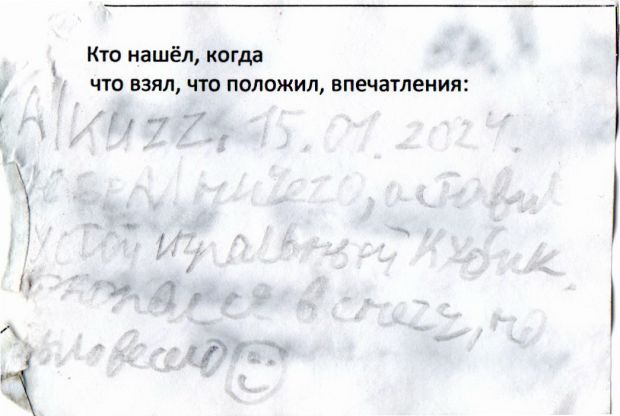 Кто нашёл, когда
что взял, что положил, впечатления:
AlKuzz. 15.01.2024.
не брал ничего, оставил
игральный кубик.
в снегу, но
было весело